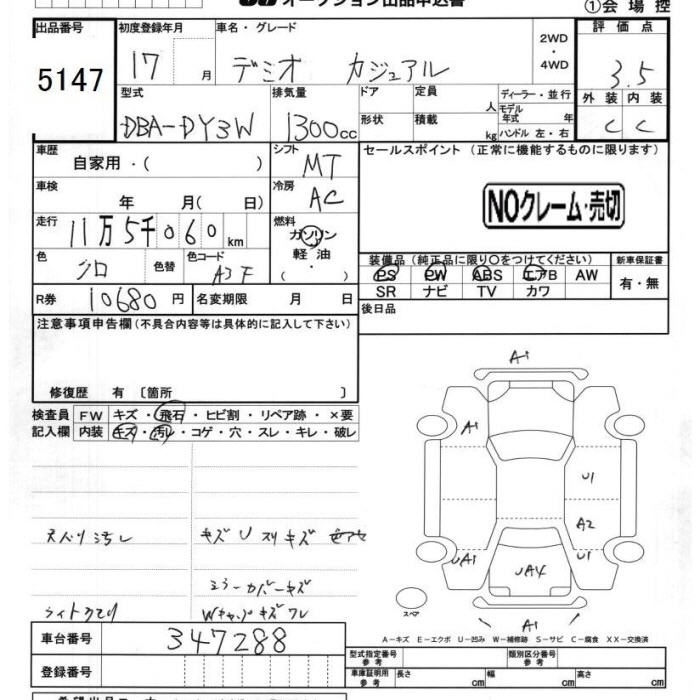 オークション出品申込書
①会場控
出品番号
5147
初度登録年月
17 月
車名・グレード
デミオ カジュアル
2WD
・
4WD
評価点
3.5
外装 内装
C C
型式
DBA-DY3W
排気量
1300cc
ドア
形状
定員 人
積載 kg
ディーラー・並行
モデル年式 年
ハンドル 左・右
車歴
自家用・( )
シフト
MT
車検
年 月( 日)
冷房
AC
走行
11万5千060km
燃料
ガソリン
軽油
・( )
色
シロ
色替
色コード
A3F
R券 10680円
名変期限 月 日
セールスポイント (正常に機能するものに限ります)
NOクレーム・売切
装備品(純正品に限り○をつけてください)
PS PW ABS エアB AW
SR ナビ TV カワ
新車保証書
有・無
後日品
注意事項申告欄(不具合内容等は具体的に記入して下さい)
修復歴 有 〔箇所 〕
検査員記入欄
FW キズ・飛石・ヒビ割・リペア跡・×要
内装 キズ・汚レ・コゲ・穴・スレ・キレ・破レ
天ハリ汚レ
キズ U スリキズ
ミラーカバーキズ
Wキャップキズ ワレ
ライトクモリ
A1
A1
U1
A2
UA1
UA4
U1
A1
スペア
A－キズ E－エクボ U－凹み W－補修跡 S－サビ C－腐食 XX－交換済
車台番号
347288
登録番号
型式指定番号 参考
類別区分番号 参考
車庫証明用 参考
長さ cm
幅 cm
高さ cm